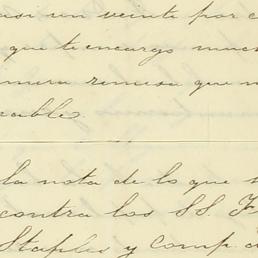 asi un veinte por c
que te encargo muc
mera remesa que m
cable.
la nota de lo que s
contra los SS. F
Staples y comp. d